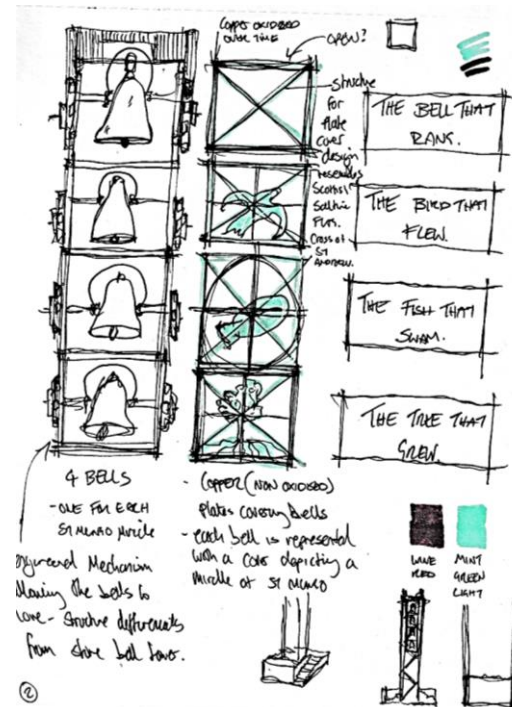 COPPER OXIDISED
OVER TIME
OPEN?
Structure
for
plate
cover
design
resembles
Scottish
Saltire
FLAG.
Cross of
ST
ANDREW.
THE BELL THAT
RANG.
THE BIRD THAT
FLEW.
THE FISH THAT
SWAM.
THE TREE THAT
GREW.
4 BELLS
- ONE FOR EACH
ST MUNGO MIRACLE
Mechanism
the bells to
- structure
from bell tower.
- COPPER (NON OXIDISED)
Plates covering bells
- each bell is represented
with a cover depicting a
miracle of ST MUNGO
WINE
RED
MINT
GREEN
LIGHT
2